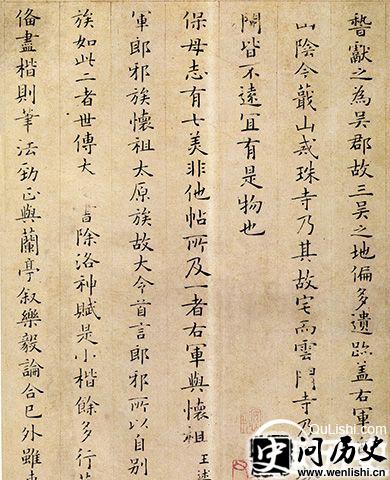 獻之為吳郡故三吳之地偏多遺跡蓋右軍
山陰今蕺山戒珠寺乃其故宅而雲門寺乃
皆不遠宜有是物也
保母志有七美非他帖所及一者右軍與懷祖王述
軍耶邪族懷祖太原族故大令首言耶邪所以自別
族如此二者世傳大
除洛神賦是小楷餘多行
俻盡楷則筆法勁正與蘭亭叙樂毅論合已外雖
QuLishi.com
问历史
www.wenlishi.cn